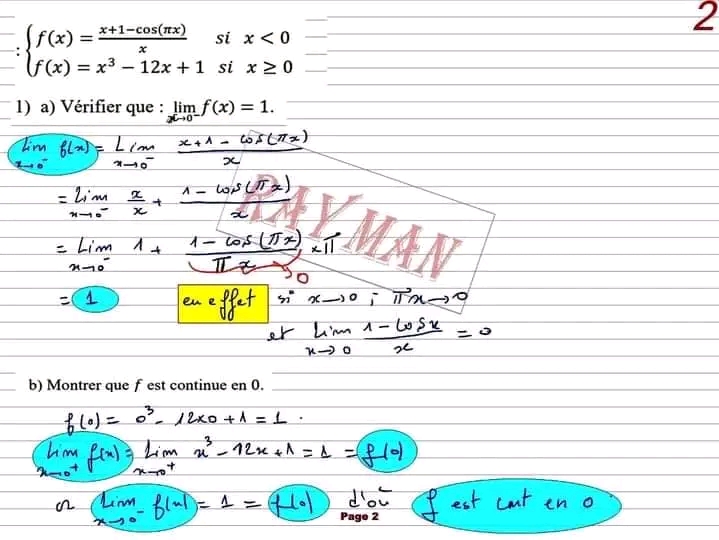 2
: { f(x) = (x+1−cos(πx))/x si x < 0
f(x) = x³ − 12x + 1 si x ≥ 0
1) a) Vérifier que : lim_{x→0⁻} f(x) = 1.
Lim_{x→0⁻} f(x) = Lim_{x→0⁻} (x+1−cos(πx))/x
= Lim_{x→0⁻} x/x + (1−cos(πx))/x
= Lim_{x→0⁻} 1 + (1−cos(πx))/(πx) × π → 0
= 1 en effet si x→0 ; πx→0
et Lim_{x→0} (1−cos x)/x = 0
RAYMAN
b) Montrer que f est continue en 0.
f(0) = 0³ − 12×0 + 1 = 1 .
Lim_{x→0⁺} f(x) = Lim_{x→0⁺} x³ − 12x + 1 = 1 = f(0)
or Lim_{x→0⁻} f(x) = 1 = f(0) d'où f est cont en 0
Page 2